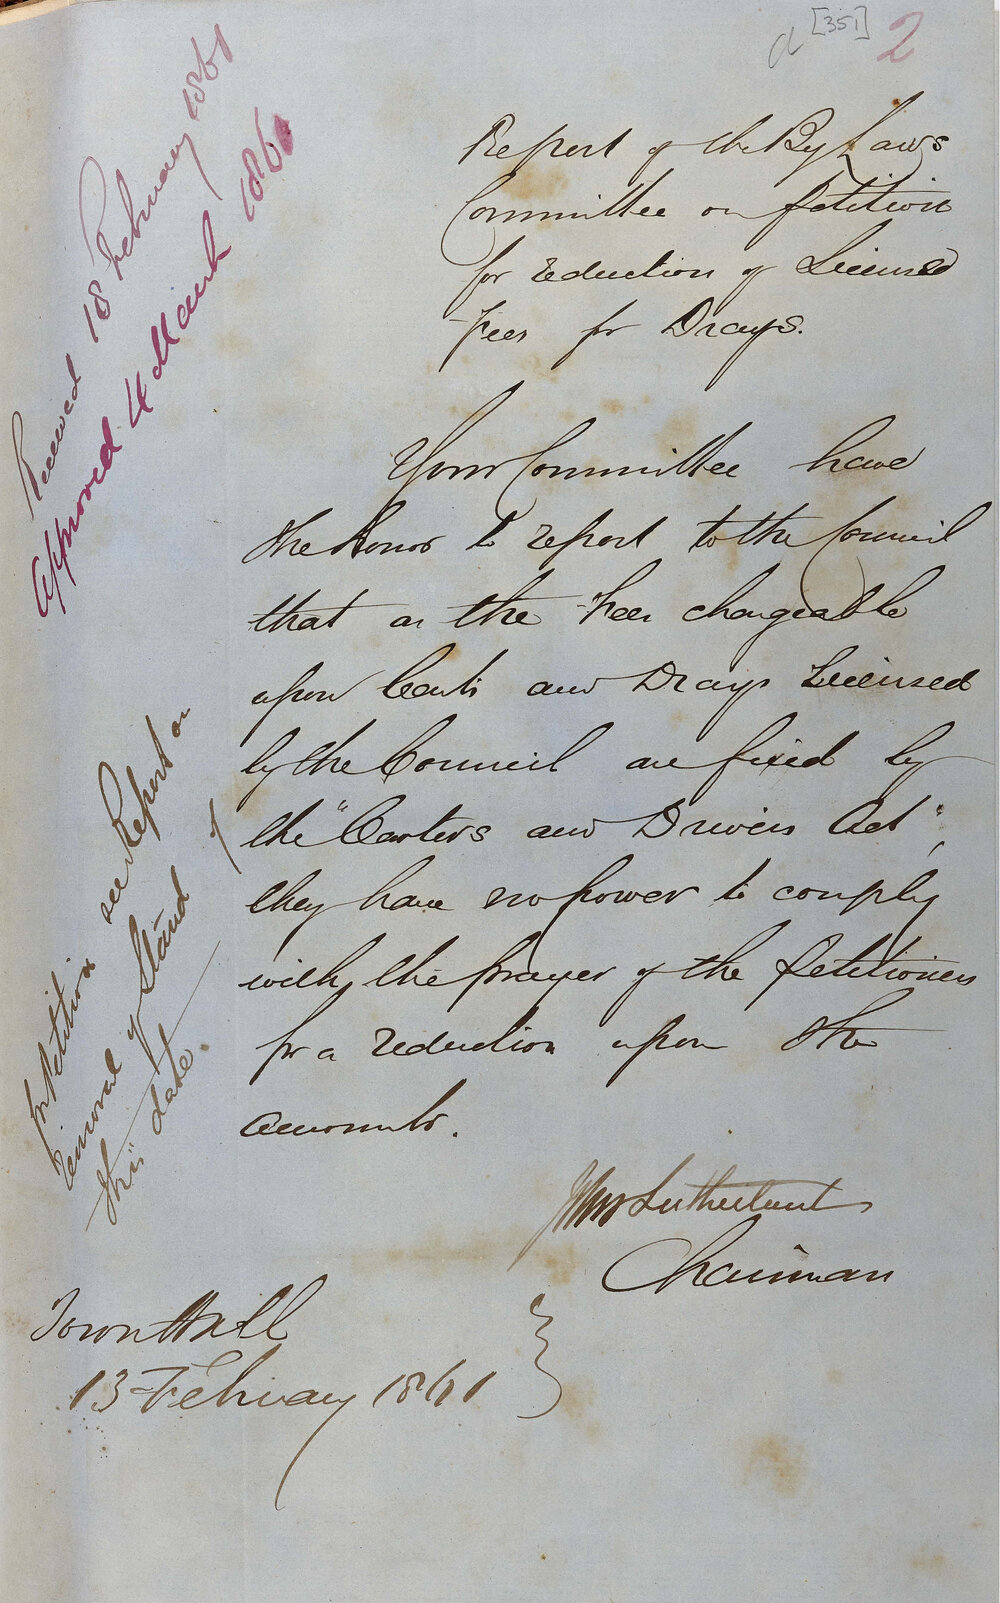 a [351] 2
Report of the By Laws
Committee on petition
for reduction of Licensed
Fees for Drays.
Your Committee have
the honor to report to the Council
that as the Fees chargeable
upon Carts and Drays Licensed
by the Council are fixed by
the "Carters and Drivers Act",
they have no power to comply
with the prayer of the petitioners
for a reduction upon the
amounts.
Sutherland
Chairman
Town Hall
13 February 1861
Received 18 February 1861
Approved 4 March 1861
for Petition see Report on
removal of Stand of
this date.